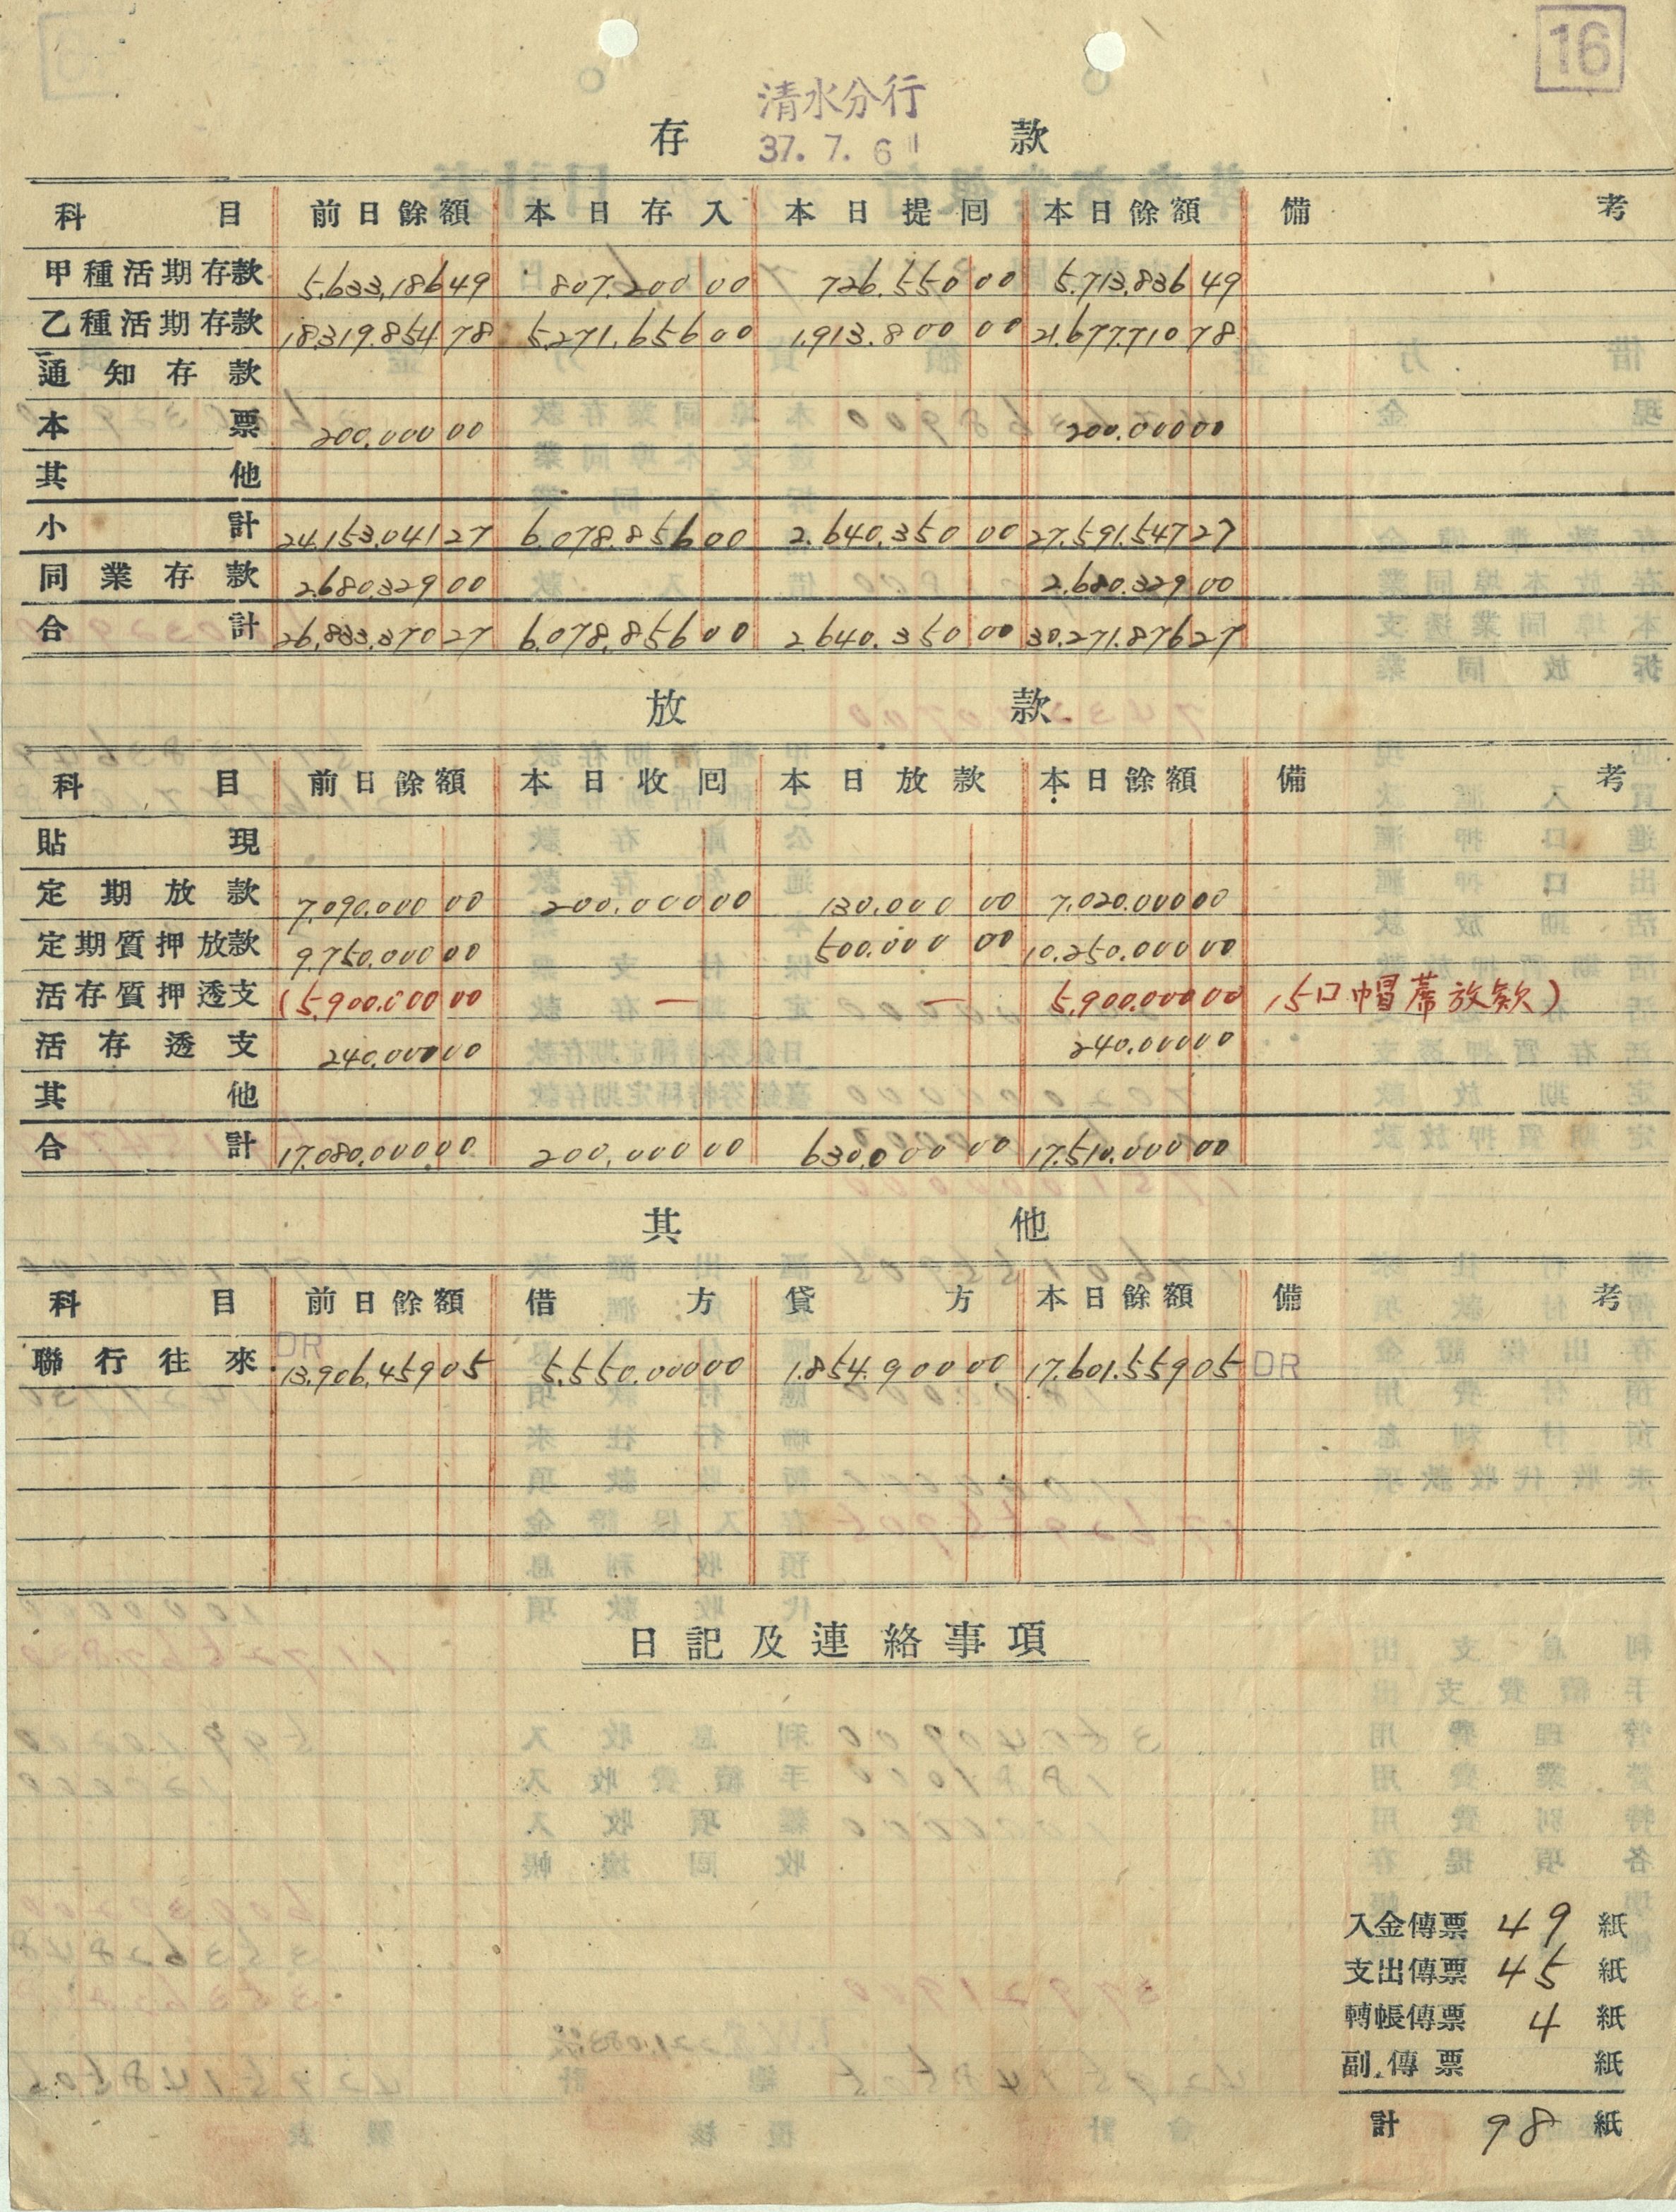 16
清水分行
37. 7. 6
存 款
科目 前日餘額 本日存入 本日提囘 本日餘額 備考
甲種活期存款 5,633,186 49 807,200 00 726,550 00 5,713,836 49
乙種活期存款 18,319,854 78 5,271,656 00 1,913,800 00 21,677,710 78
通知存款
本票 200,000 00 200,000 00
其他
小計 24,153,041 27 6,078,856 00 2,640,350 00 27,591,547 27
同業存款 2,680,329 00 2,680,329 00
合計 26,833,370 27 6,078,856 00 2,640,350 00 30,271,876 27
放 款
科目 前日餘額 本日收囘 本日放款 本日餘額 備考
貼現
定期放款 7,090,000 00 200,000 00 130,000 00 7,020,000 00
定期質押放款 9,750,000 00 500,000 00 10,250,000 00
活存質押透支 (5,900,000 00 — — 5,900,000 00 15口帽蓆放款)
活存透支 240,000 00 240,000 00
其他
合計 17,080,000 00 200,000 00 630,000 00 17,510,000 00
其 他
科目 前日餘額 借方 貸方 本日餘額 備考
聯行往來 DR 13,906,459 05 5,550,000 00 1,854,900 00 17,601,559 05 DR
日記及連絡事項
入金傳票 49 紙
支出傳票 45 紙
轉帳傳票 4 紙
副傳票 紙
計 98 紙